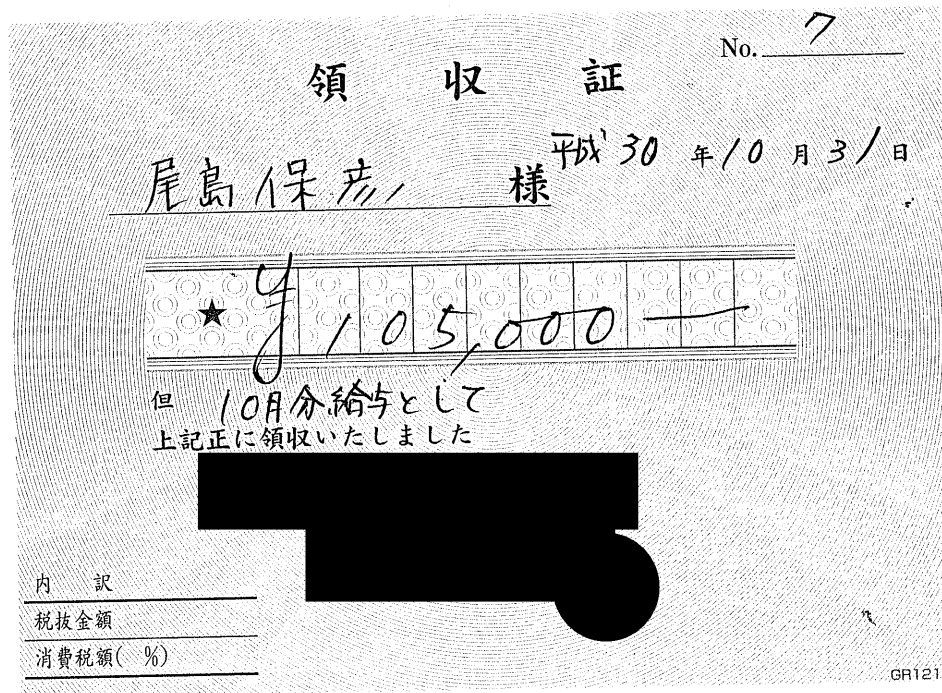 No. 7
領収証
平成30年10月31日
尾島保彦 様
★ ¥105,000―
但 10月分給与として
上記正に領収いたしました
内訳
税抜金額
消費税額( %)
GR121